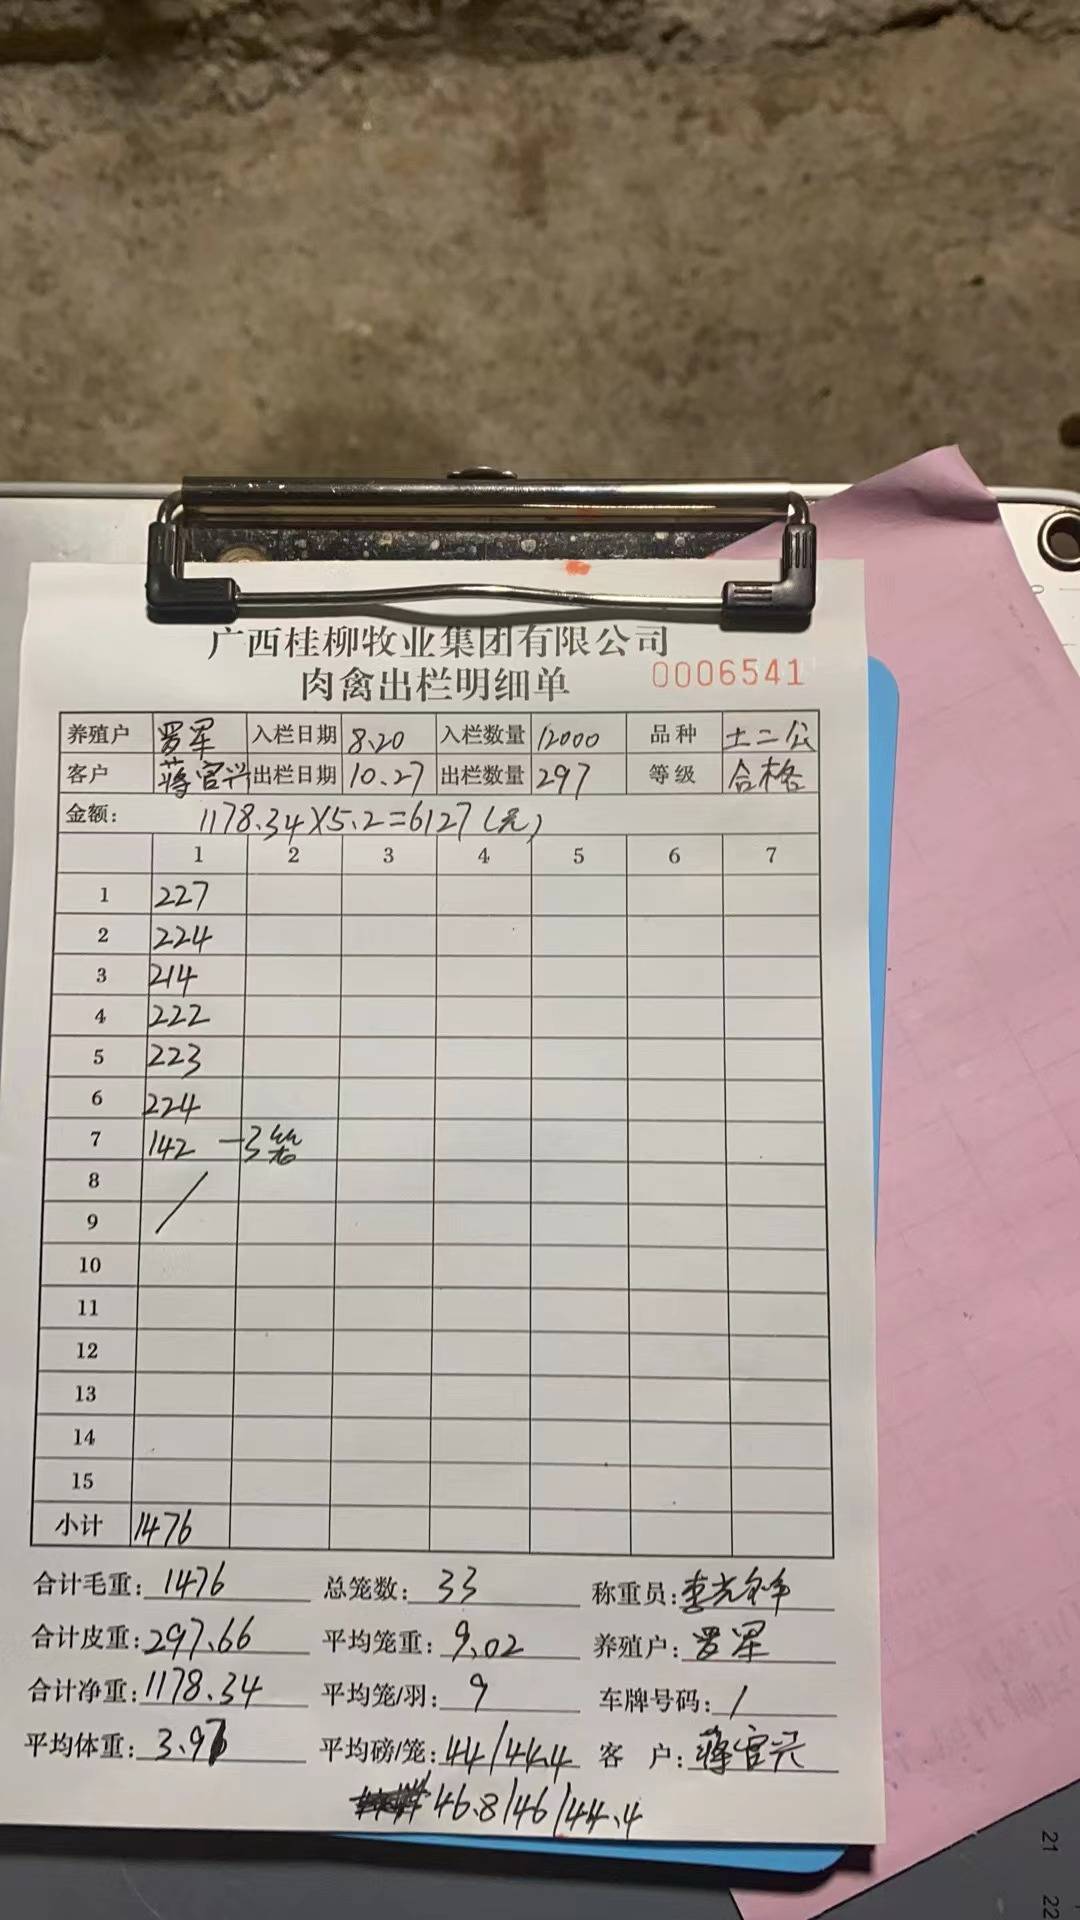 广西桂柳牧业集团有限公司
肉禽出栏明细单 0006541
养殖户 罗军 入栏日期 8.20 入栏数量 12000 品种 土二公
客户 蒋官兴 出栏日期 10.27 出栏数量 297 等级 合格
金额: 1178.34X5.2=6127(元)
1 2 3 4 5 6 7
1 227
2 224
3 214
4 222
5 223
6 224
7 142 —3笼
8 /
9
10
11
12
13
14
15
小计 1476
合计毛重: 1476 总笼数: 33 称重员:
合计皮重: 297.66 平均笼重: 9.02 养殖户: 罗军
合计净重: 1178.34 平均笼/羽: 9 车牌号码: /
平均体重: 3.97 平均磅/笼: 44/44.4 客户: 蒋官兴
46.8/46/44.4
21
22